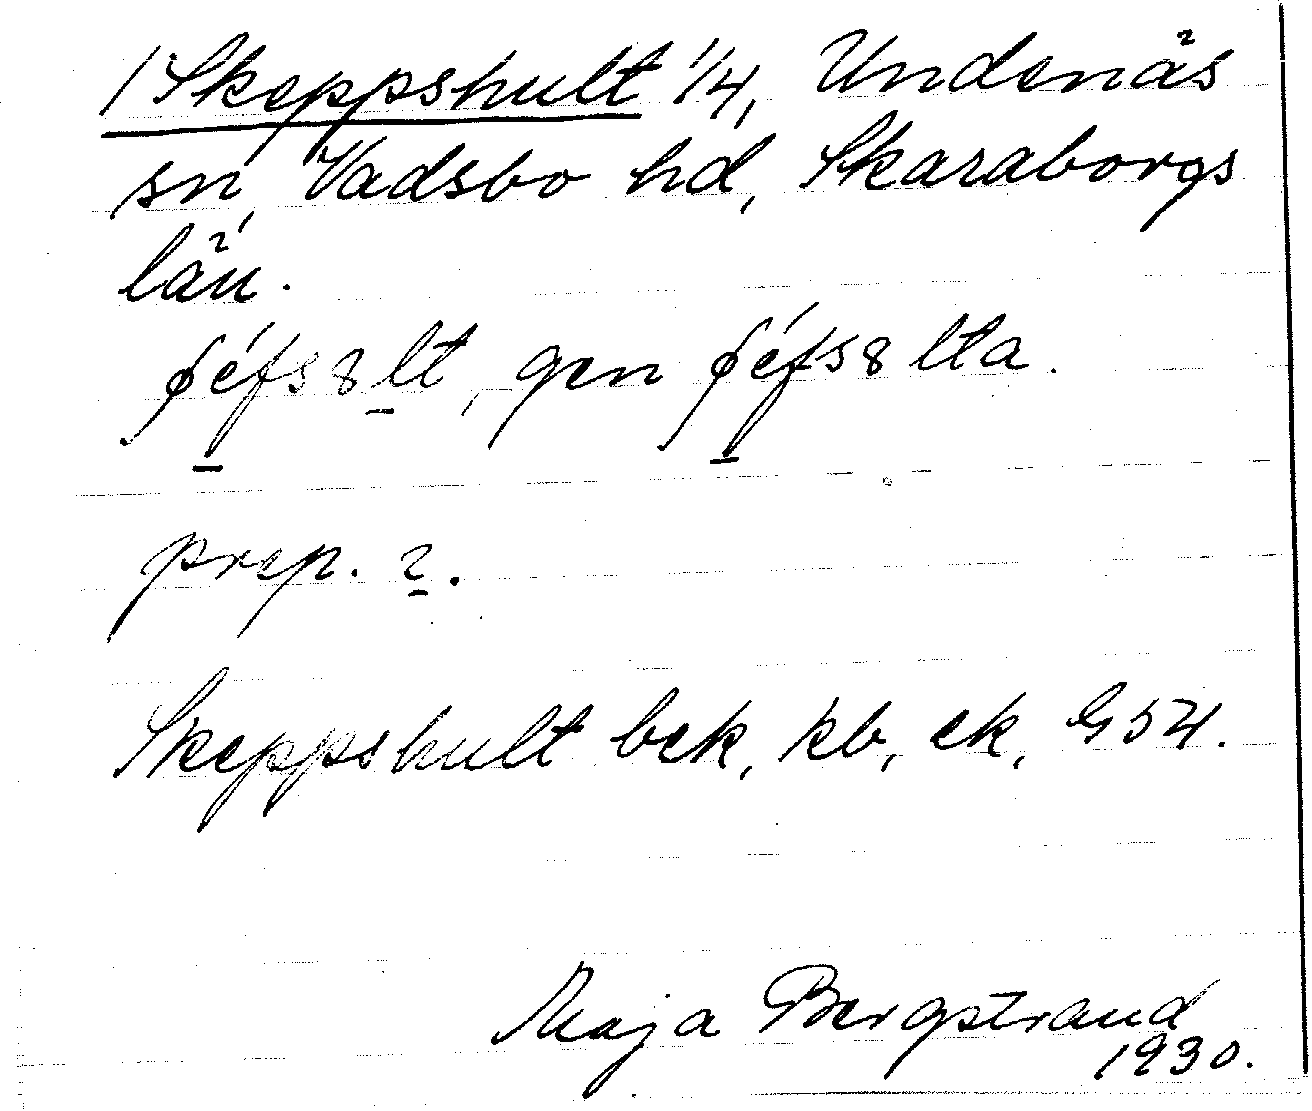 /Skeppshult 1/4, Undenäs
sn, Vadsbo hd, Skaraborgs
län.
gen
prep.
Skeppshult bek, kb, ek, G54.
Maja Bergstrand
1930.